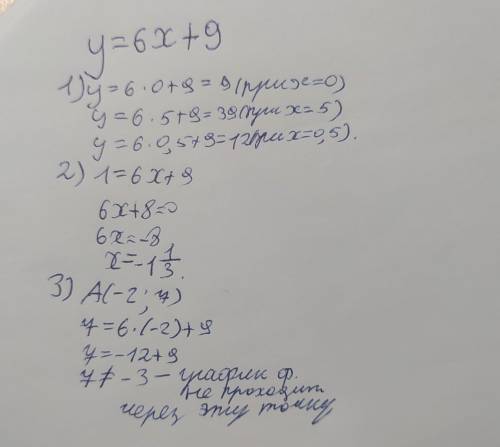 y=6x+9
1) y=6·0+9=9(при x=0)
y=6·5+9=39(при x=5)
y=6·0,5+9=12(при x=0,5).
2) 1=6x+9
6x+8=0
6x=-8
x=-1 1/3.
3) A(-2; 7)
7=6·(-2)+9
7=-12+9
7≠-3 – график ф.
не проходит
через эту точку